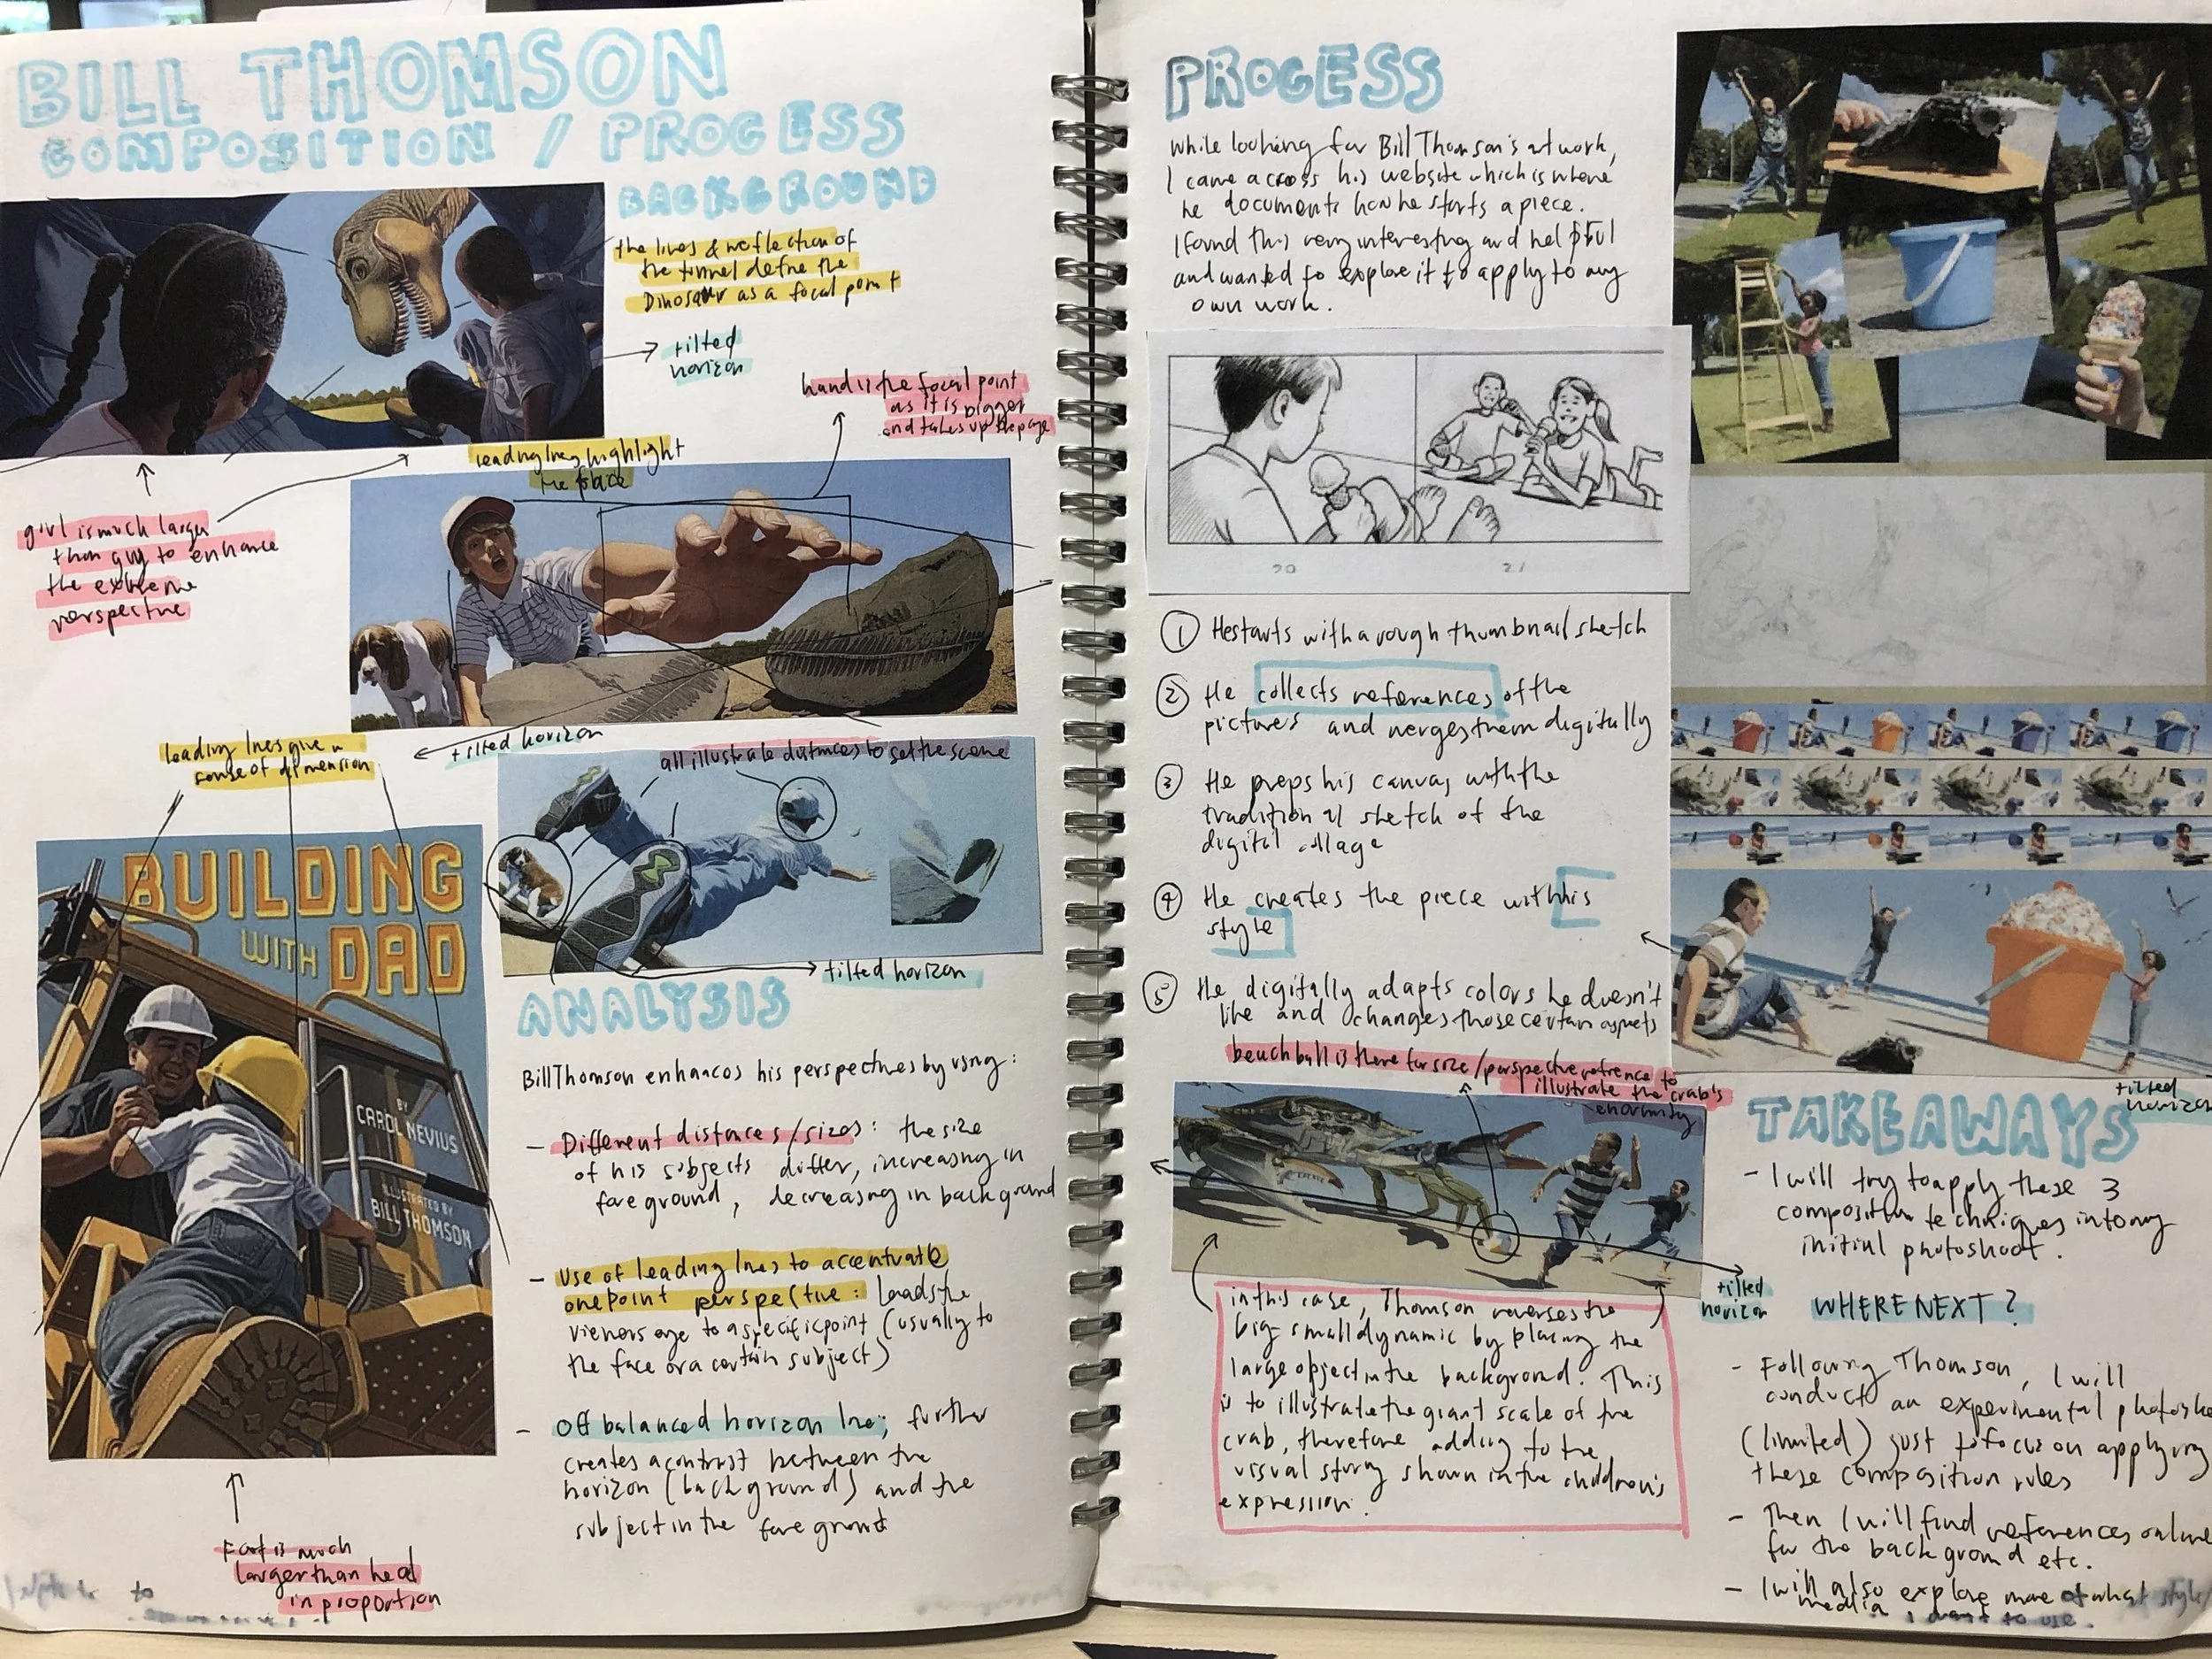 BILL THOMSON
COMPOSITION / PROCESS
BACKGROUND
the lines & reflection of
the tunnel define the
Dinosaur as a focal point
tilted
horizon
hand is the focal point
as it is bigger
and takes up the page
leading lines highlight
the face
girl is much larger
than guy to enhance
the extreme
perspective
tilted horizon
leading lines give a
sense of dimension
all illustrate distances to set the scene
BUILDING
WITH DAD
BY
CAROL NEVIUS
ILLUSTRATED BY
BILL THOMSON
tilted horizon
ANALYSIS
Bill Thomson enhances his perspectives by using:
- Different distances/sizes: the size
of his subjects differ, increasing in
foreground, decreasing in background
- Use of leading lines to accentuate
one point perspective: Leads the
viewers eye to a specific point (usually to
the face or a certain subject)
- Off balanced horizon line; further
creates a contrast between the
horizon (background) and the
subject in the foreground
Foot is much
larger than head
in proportion
to
PROCESS
While looking for Bill Thomson's artwork,
I came across his website which is where
he documents how he starts a piece.
I found this very interesting and helpful
and wanted to explore it to apply to my
own work.
20
21
① He starts with a rough thumbnail sketch
② He collects references of the
pictures and merges them digitally
③ He preps his canvas with the
traditional sketch of the
digital collage
④ He creates the piece with his
style
⑤ He digitally adapts colors he doesn't
like and changes those certain aspects
beach ball is there for size/perspective refrence to
illustrate the crab's
enormity
tilted
horizon
tilted
horizon
in this case, Thomson reverses the
big-small dynamic by placing the
large object in the background. This
is to illustrate the giant scale of the
crab, therefore adding to the
visual story shown in the children's
expression.
TAKEAWAYS
- I will try to apply these 3
composition techniques into my
initial photoshoot.
WHERE NEXT?
- Following Thomson, I will
conduct an experimental
(limited) just to focus on applying
these composition rules
- Then I will find references online
for the background etc.
- I will also explore more of what style/
media I want to use.